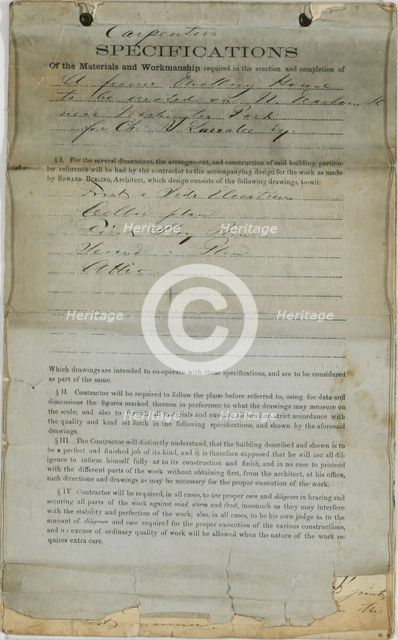 Carpenters
SPECIFICATIONS
Of the Materials and Workmanship required in the erection and completion of
A frame Dwelling House
to be erected on N
near Washington Park
for Ch. J. Esq.
§ I. For the several dimensions, the arrangement, and construction of said building, particu-
lar reference will be had by the contractor to the accompanying design for the work as made
by EDWARD BURLING, Architect, which design consists of the following drawings, to-wit:
Front & Side Elevations
Cellar plan
Plan
Second " Plan
Attic "
Heritage
Heritage
Heritage
Heritage
Heritage
Heritage
Heritage
©
Which drawings are intended to co-operate with these specifications, and are to be considered
as part of the same.
§ II. Contractor will be required to follow the plans before referred to, using for data and
dimensions the figures marked thereon in preference to what the drawings may measure on
the scale; and also to materials and strict accordance with
the quality and kind set forth in the following specifications, and shown by the aforesaid
drawings.
§ III. The Contractor will distinctly understand, that the building described and shown is to
be a perfect and finished job of its kind, and it is therefore supposed that he will use all dil-
igence to inform himself fully as to its construction and finish, and in no case to proceed
with the different parts of the work without obtaining first, from the architect, at his office,
such directions and drawings as may be necessary for the proper execution of the work.
§ IV. Contractor will be required, in all cases, to use proper care and diligence in bracing and
securing all parts of the work against wind, storm and frost, inasmuch as they may interfere
with the stability and perfection of the work; also, in all cases, to be his own judge as to the
amount of diligence and care required for the proper execution of the various constructions,
and no excuse of ordinary quality of work will be allowed when the nature of the work re-
quires extra care.
joints
the